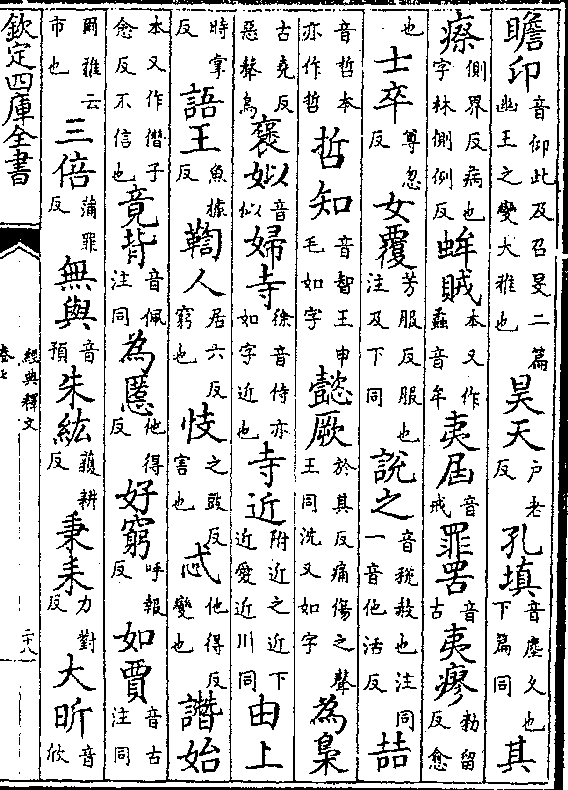 瞻卬音仰此及召旻二篇幽王之變大雅也昊天户老反孔填音塵久也下篇同其
瘵側界反病也字林側例反蛑賊本又作蟊音牟夷屆音戒罪罟音古夷瘳勑留反愈
也士卒尊忽反女覆芳服反服也注及下同說之音稅赦也注同一音他活反喆
音哲本亦作哲哲知音智王申毛如字懿厥於其反痛傷之聲王同沈又如字為梟
古堯反惡聲鳥褒姒音似婦寺徐音侍亦如字近也寺近附近之近下近愛近川同由上
時掌反語王魚據反鞫人居六反窮也忮之豉反害也忒他得反變也譖始
本又作僭子愈反不信也竟背音佩注同為慝他得反好窮呼報反如賈音古注同
爾雅云市也三倍蒲罪反無與音預朱紘獲耕反秉耒力對反大昕音欣
欽定四庫全書
經典釋文
卷七
二十八